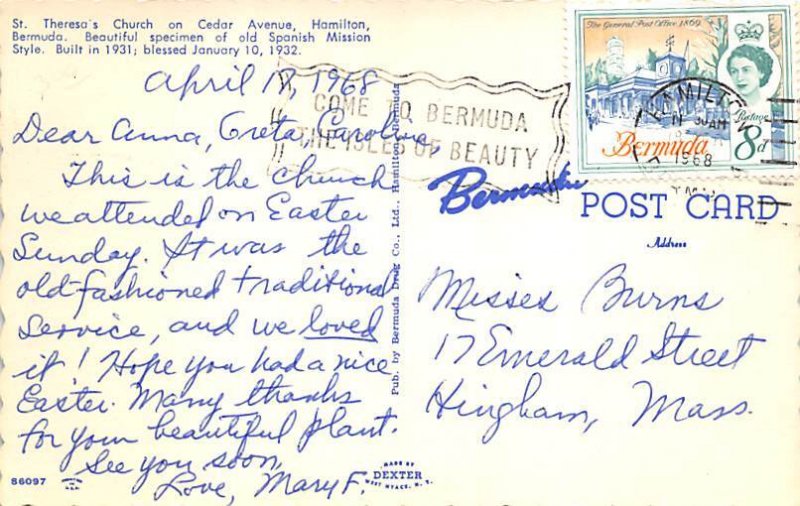 St. Theresa's Church on Cedar Avenue, Hamilton,
Bermuda. Beautiful specimen of old Spanish Mission
Style. Built in 1931; blessed January 10, 1932.
April 17, 1968
Dear Anna, Greta, Caroline,
This is the church
we attended on Easter
Sunday. It was the
old-fashioned traditional
service, and we loved
it! Hope you had a nice
Easter. Many thanks
for your beautiful plant.
See you soon,
Love, Mary F.
86097
Pub. by Bermuda Drug Co., Ltd., Hamilton, Bermuda
MADE BY
DEXTER
WEST NYACK, N. Y.
COME TO BERMUDA
THE ISLE OF BEAUTY
The General Post Office 1869
Postage
8d
Bermuda
HAMILTON
AM
1968
Bermuda
POST CARD
Address
Misses Burns
17 Emerald Street
Hingham, Mass.